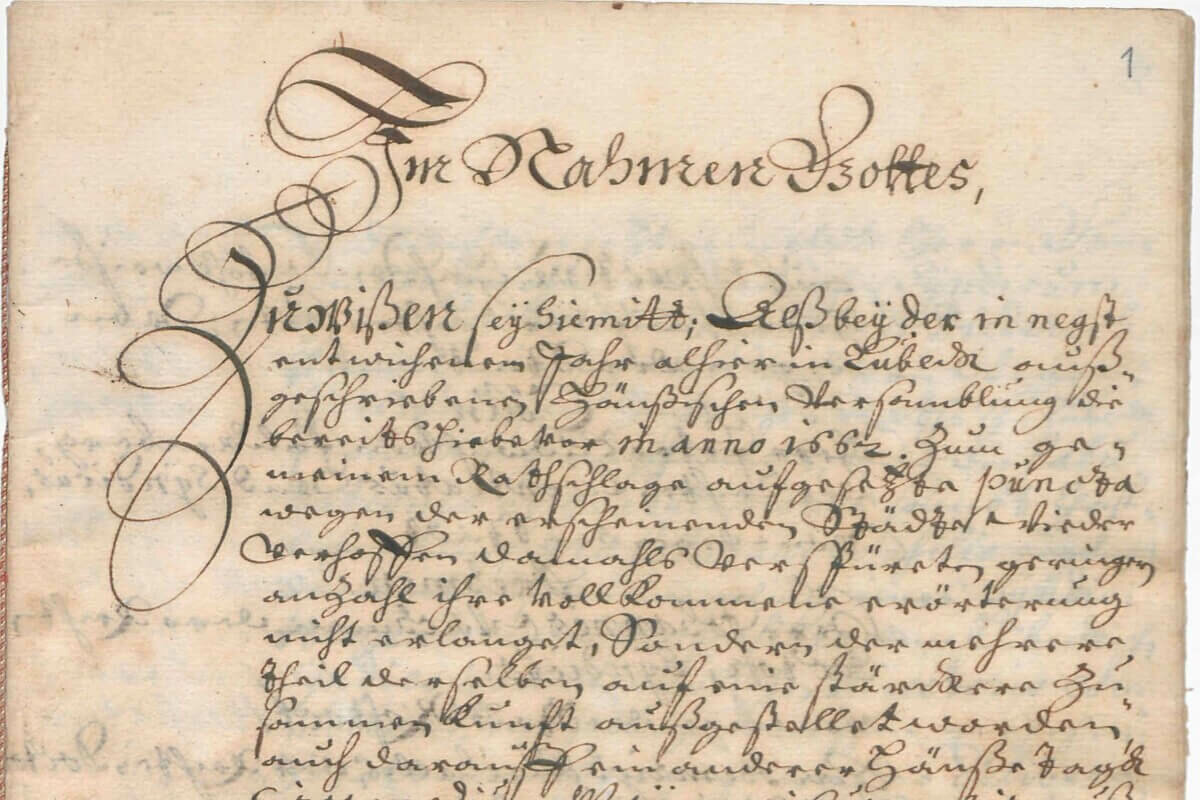 1
Im Nahmen Gottes,
Zuwißen sey hiemitt; Alß bey der in negst
entwichenem Jahr alhier in Lübeck auß-
geschriebenen Hänßischen Versamblung die
bereits hiebevor in anno 1662. Zum ge-
meinem Rathschlage aufgesetzte puncta
wegen der erscheinenden Städte wieder
Verhoffen damahls verspüreten geringen
anzahl ihre vollkommene erörterung
nicht erlanget, Sondern der mehrere
theil derselben auf eine stärckere Zu
sammen kunfft außgestellet worden,
auch darauff ein anderer Hänße Tagk